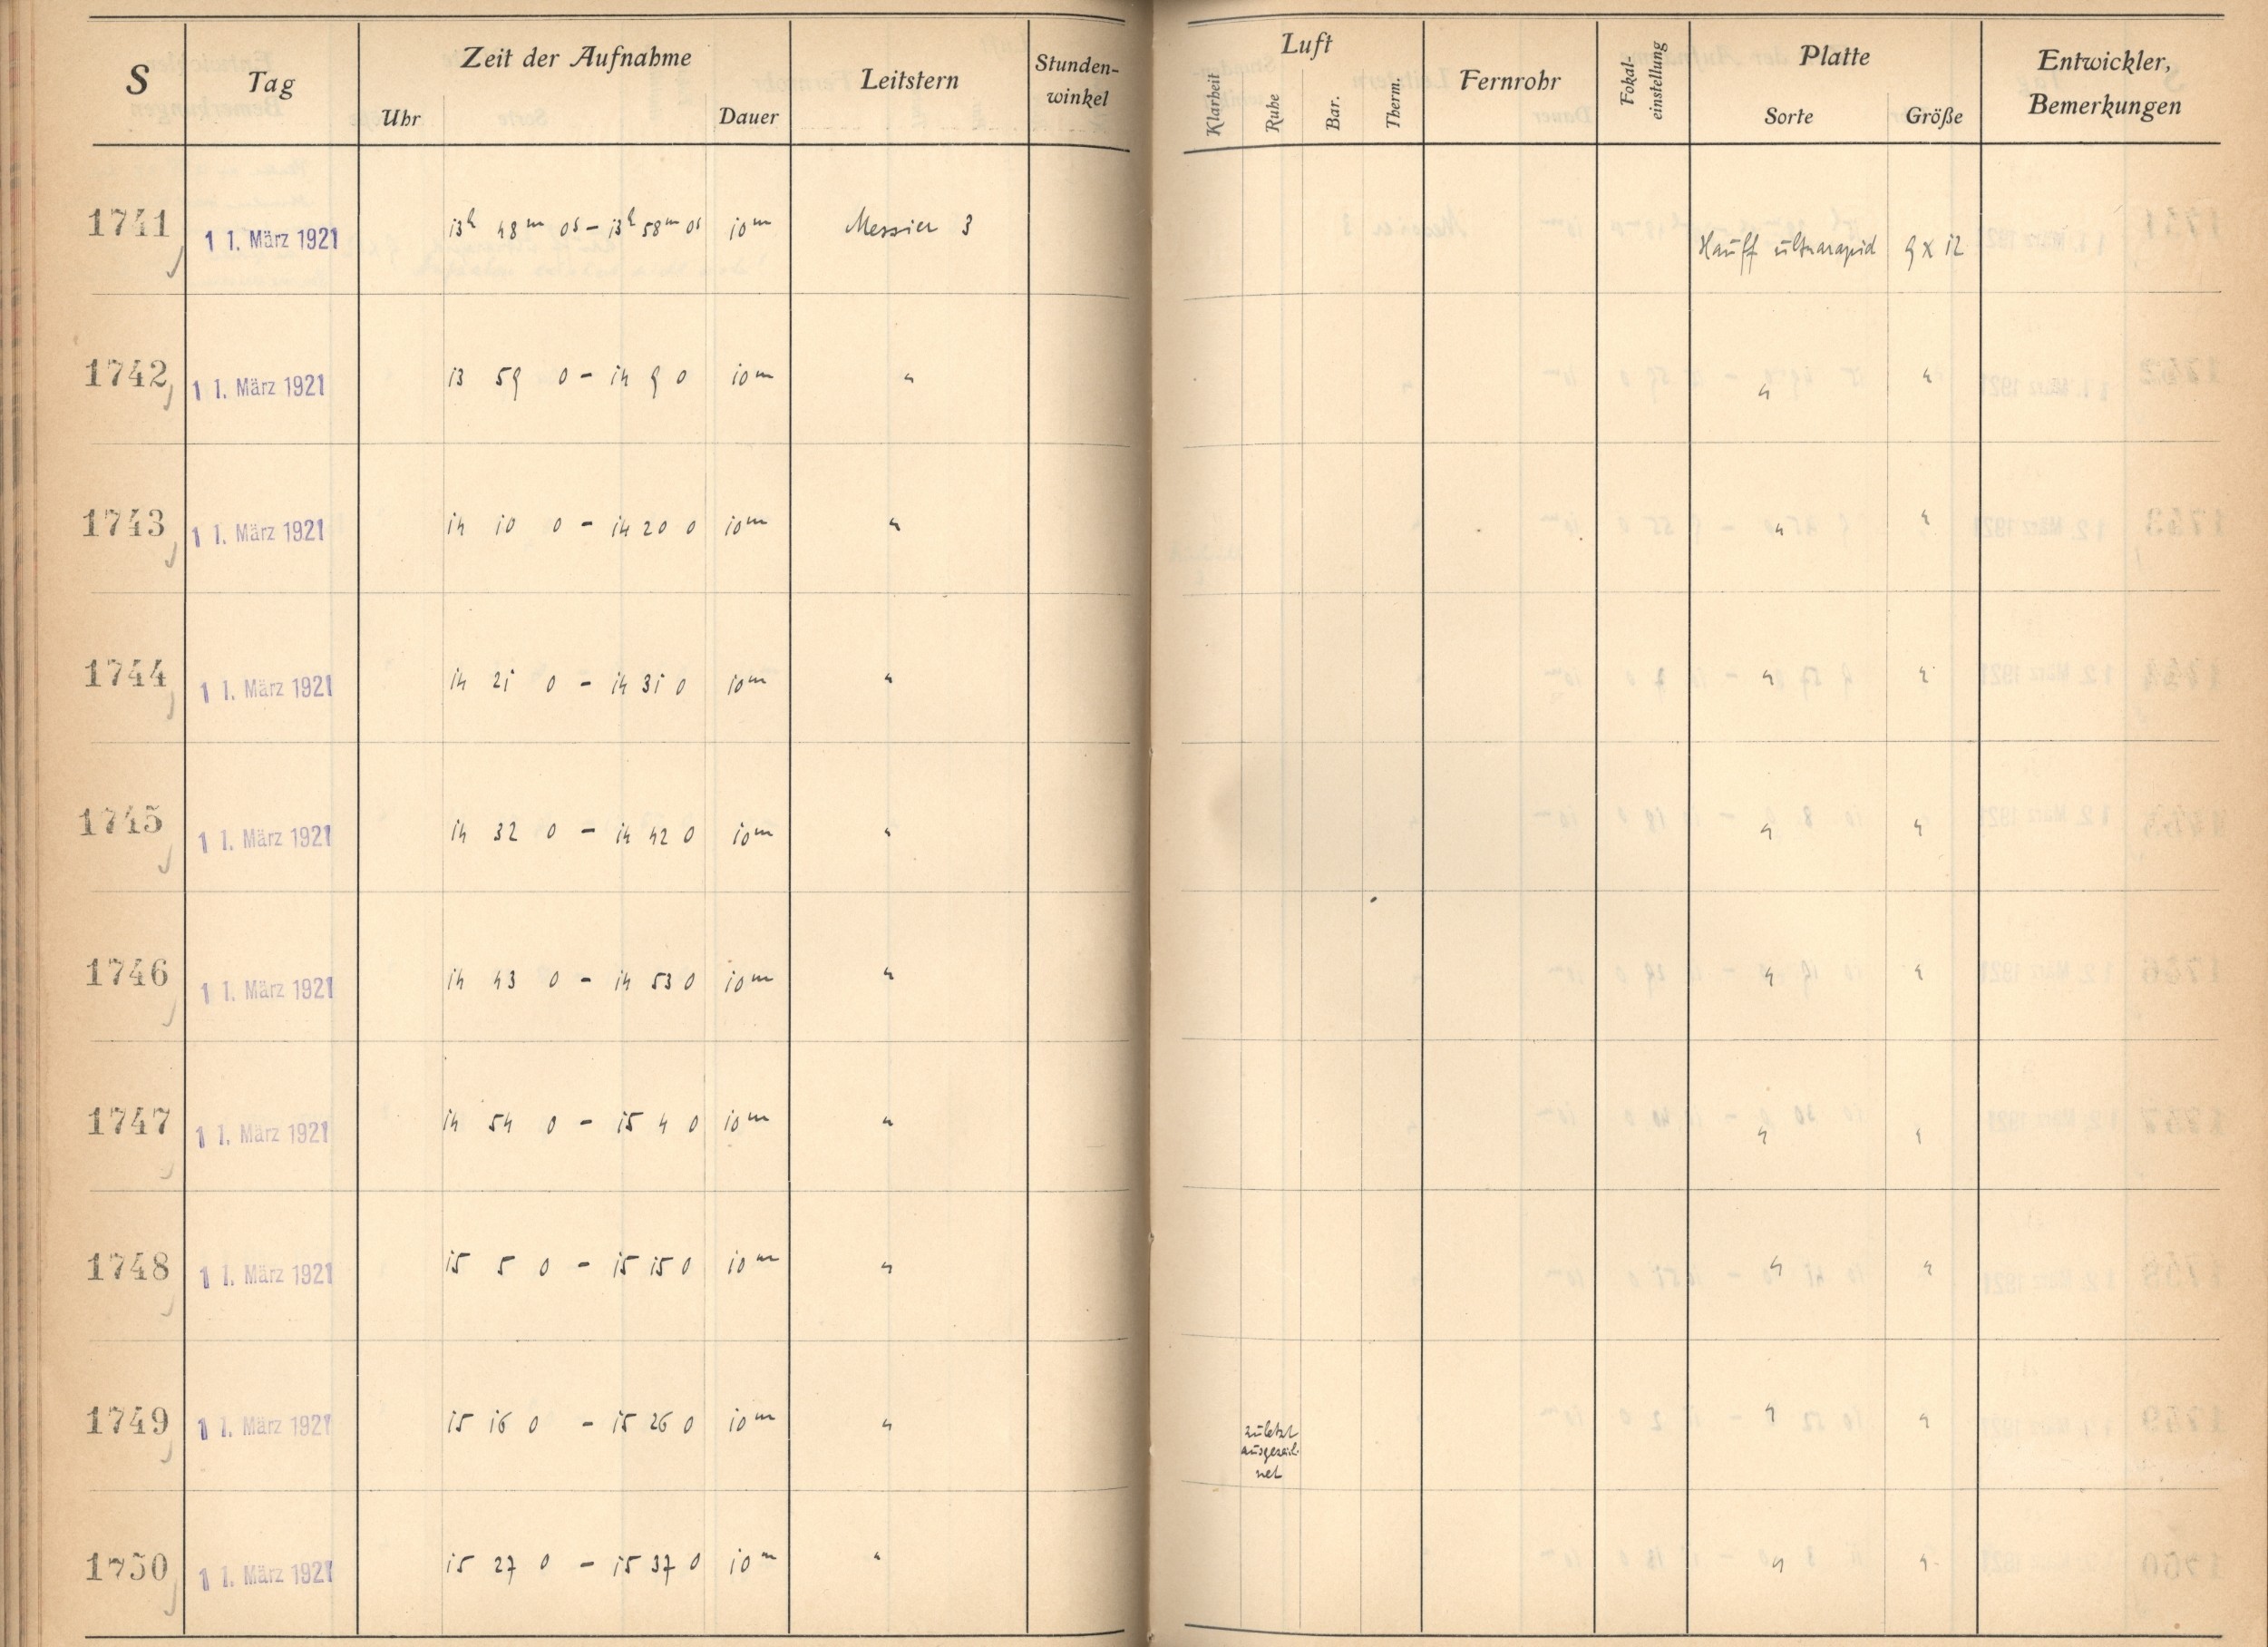 S Tag Zeit der Aufnahme Leitstern Stunden-winkel Luft Fernrohr Fokal-einstellung Platte Entwickler, Bemerkungen
Uhr Dauer Klarheit Ruhe Bar. Therm. Sorte Größe
1741 11. März 1921 13h 48m 0s – 13h 58m 0s 10m Messier 3 Hauff ultrarapid 9 x 12
1742 11. März 1921 13 59 0 – 14 9 0 10m " " "
1743 11. März 1921 14 10 0 – 14 20 0 10m " " "
1744 11. März 1921 14 21 0 – 14 31 0 10m " " "
1745 11. März 1921 14 32 0 – 14 42 0 10m " " "
1746 11. März 1921 14 43 0 – 14 53 0 10m " " "
1747 11. März 1921 14 54 0 – 15 4 0 10m " " "
1748 11. März 1921 15 5 0 – 15 15 0 10m " " "
1749 11. März 1921 15 16 0 – 15 26 0 10m " zuletzt ausgezeichnet " "
1750 11. März 1921 15 27 0 – 15 37 0 10m " " "